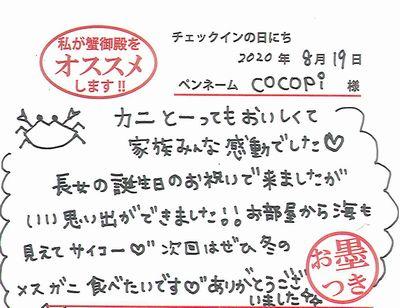 私が蟹御殿を
オススメ
します!!
チェックインの日にち
2020 年 8 月 19 日
ペンネーム cocopi 様
カニ とーっても おいしくて
家族みんな 感動でした♡
長女の誕生日のお祝いで来ましたが
いい思い出ができました!! お部屋から海も
見えてサイコー♡" 次回はぜひ冬の
メスガニ 食べたいです♡" ありがとうござ
いました
お墨
つき